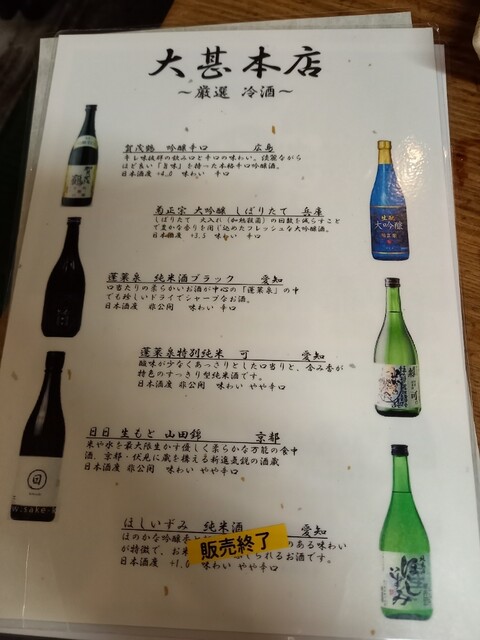 大甚本店
～厳選 冷酒～
賀茂鶴 吟醸辛口 広島
キレ味抜群の飲み口と辛口の味わい。淡麗ながら
ほど良い「旨味」を持った本格辛口吟醸酒。
日本酒度 +4.0 味わい 辛口
菊正宗 大吟醸 しぼりたて 兵庫
しぼりたて 火入れ(加熱殺菌)の回数を減らすこと
で豊かな香りを閉じ込めたフレッシュな大吟醸酒。
日本酒度 +3.5 味わい 辛口
蓬莱泉 純米酒ブラック 愛知
口当たりの柔らかいお酒が中心の「蓬莱泉」の中
でも珍しいドライでシャープなお酒。
日本酒度 非公開 味わい 辛口
蓬莱泉特別純米 可 愛知
酸味が少なくあっさりとした口当りと、含み香が
特色のすっきり型純米酒です。
日本酒度 非公開 味わい やや辛口
日日 生もと 山田錦 京都
米や水を最大限生かす優しく柔らかな万能の食中
酒。京都・伏見に蔵を構える新進気鋭の酒蔵
日本酒度 非公開 味わい やや辛口
ほしいずみ 純米酒 愛知
ほのかな吟醸 のある味わい
が特徴で、お米 られるお酒です。
日本酒度 +1.0 味わい やや辛口
販売終了
賀茂鶴
生貯
大吟醸
日
w.sake-
ほしいずみ